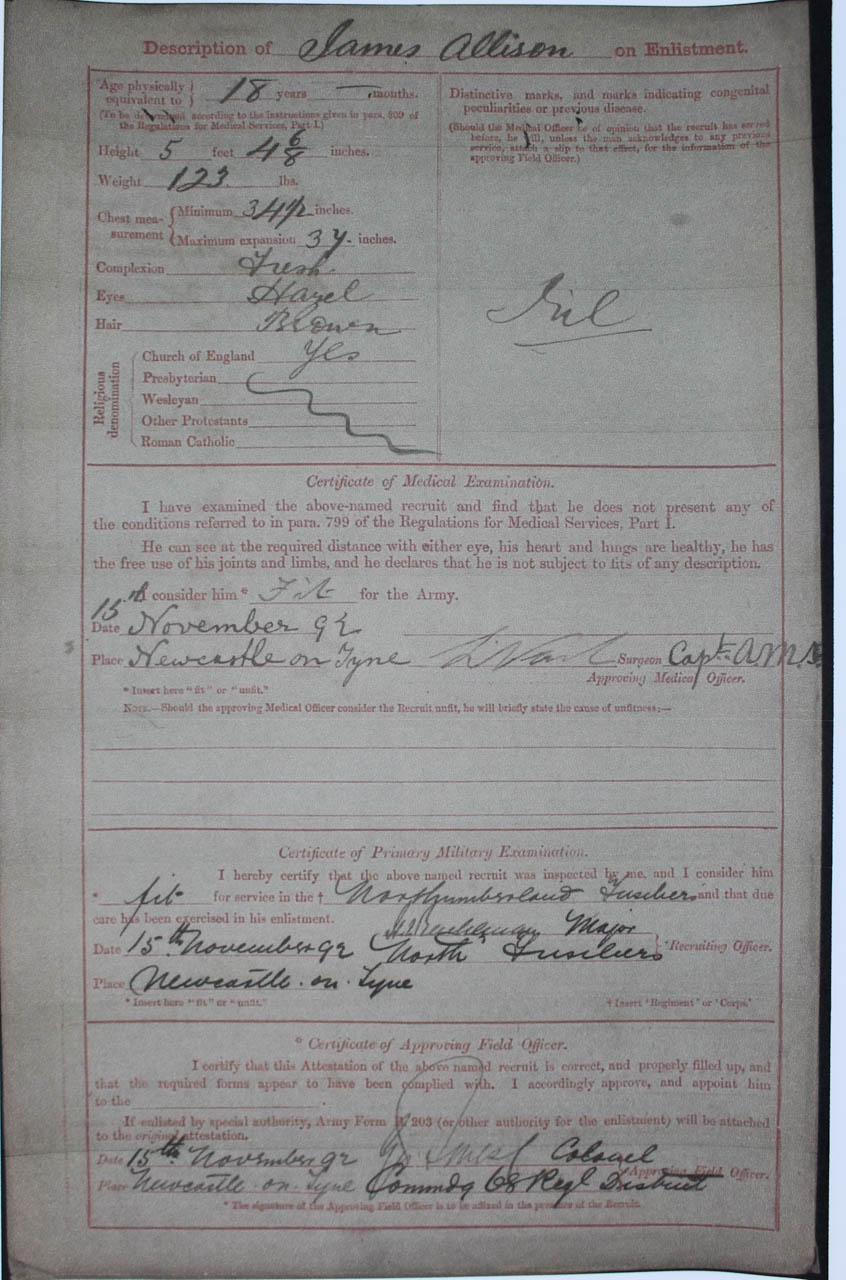 Description of James Allison on Enlistment.
Age physically equivalent to } 18 years — months.
(To be determined according to the instructions given in para. 809 of the Regulations for Medical Services, Part I.)
Height 5 feet 4 6/8 inches.
Weight 123 lbs.
Chest mea-surement { Minimum 34 1/2 inches.
Maximum expansion 37 inches.
Complexion Fresh
Eyes Hazel
Hair Brown
Religious denomination
Church of England Yes
Presbyterian
Wesleyan
Other Protestants
Roman Catholic
Distinctive marks, and marks indicating congenital
peculiarities or previous disease.
(Should the Medical Officer be of opinion that the recruit has served
before, he will, unless the man acknowledges to any previous
service, attach a slip to that effect, for the information of the
approving Field Officer.)
Nil
Certificate of Medical Examination.
I have examined the above-named recruit and find that he does not present any of
the conditions referred to in para. 799 of the Regulations for Medical Services, Part I.
He can see at the required distance with either eye, his heart and lungs are healthy, he has
the free use of his joints and limbs, and he declares that he is not subject to fits of any description.
I consider him * Fit for the Army.
Date 15th November 92
Place Newcastle on Tyne Surgeon Capt.
Approving Medical Officer.
* Insert here "fit" or "unfit."
NOTE.—Should the approving Medical Officer consider the Recruit unfit, he will briefly state the cause of unfitness:—
Certificate of Primary Military Examination.
I hereby certify that the above named recruit was inspected by me, and I consider him
* fit for service in the † Northumberland Fusiliers and that due
care has been exercised in his enlistment.
Major
Date 15th November 92 North Fusiliers } Recruiting Officer.
Place Newcastle-on-Tyne
* Insert here "fit" or "unfit." † Insert 'Regiment' or 'Corps.'
* Certificate of Approving Field Officer.
I certify that this Attestation of the above named recruit is correct, and properly filled up, and
that the required forms appear to have been complied with. I accordingly approve, and appoint him
to the
If enlisted by special authority, Army Form B 203 (or other authority for the enlistment) will be attached
to the original attestation.
Date 15th November 92 Colonel
Approving Field Officer.
Place Newcastle-on-Tyne Commdg 68 Regl District
* The signature of the Approving Field Officer is to be affixed in the presence of the Recruit.